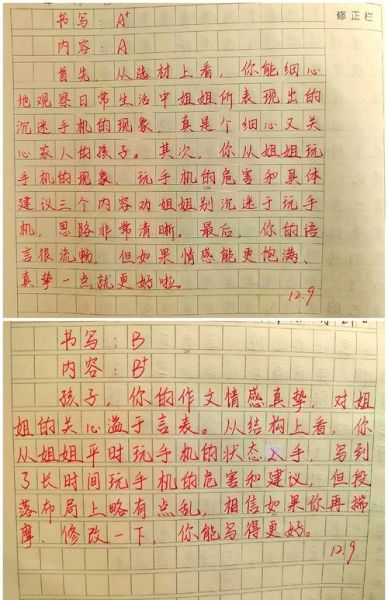 修正栏
书写：A⁺
内容：A
首先，从选材上看，你能细心
地观察日常生活中姐姐所表现出的
沉迷手机的现象，真是个细心又关
心家人的孩子。其次，你从姐姐玩
手机的现象、玩手机的危害和具体
建议三个内容劝姐姐别沉迷于玩手
机，思路非常清晰。最后，你的语
言很流畅，但如果情感能更饱满、
真挚一点就更好啦。
12.9
书写：B
内容：B⁺
孩子，你的作文情感真挚，对姐
姐的关心溢于言表。从结构上看，你
从姐姐平时玩手机的状态入手，写到
了长时间玩手机的危害和建议，但段
落布局上略有点乱，相信如果你再揣
摩、修改一下，你能写得更好。
12.9